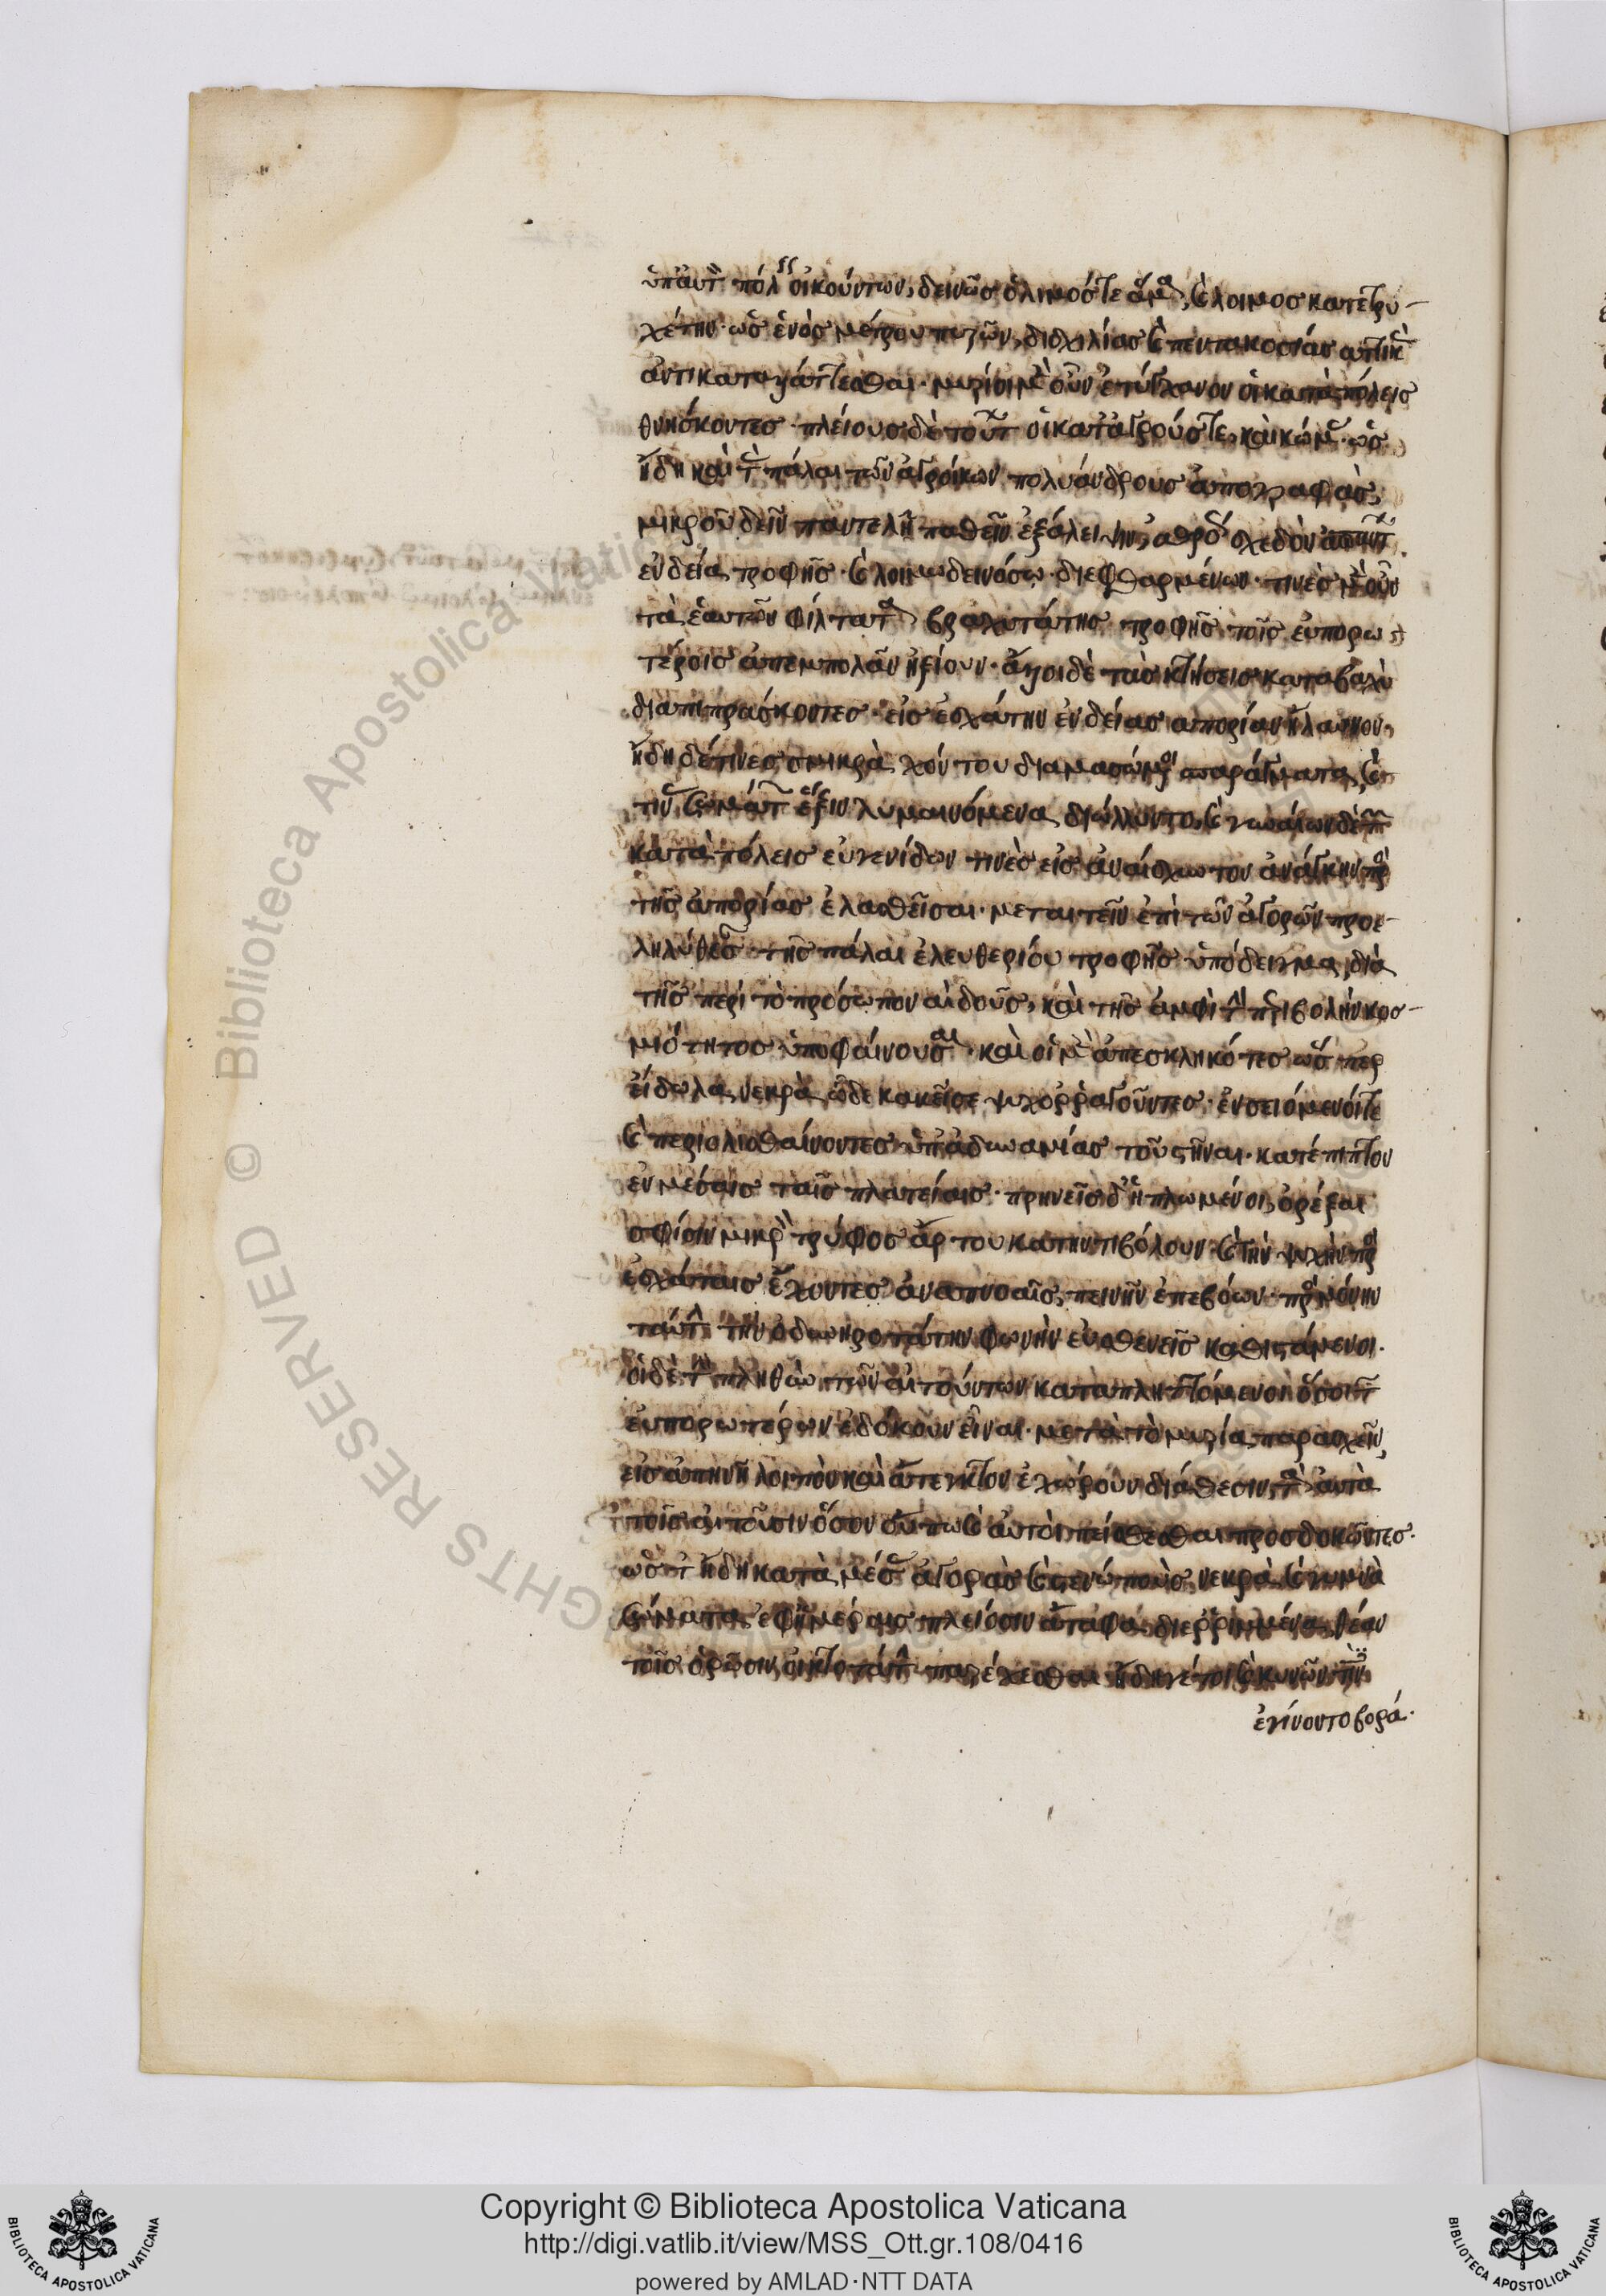 ὑπ αὐτ πόλ οἰκούντων, δεινῶς ὁ λιμός τε ἅμα, καὶ λοιμος κατετρυ-
χέτην· ὡς ἑνὸς μέτρου πυρῶν, δισχιλίας καὶ πεντακοσίας ἀττικ
ἀντικαταλλάττεσθαι· μυρίοι μὲν οὖν ἐτύγχανον οἱ κατὰ πόλεις
θνήσκοντες· πλείους δὲ τούτ οἱ κατ ἀγρούς τε, καὶ κώμ· ὡς
ἤδη καὶ τὰς πάλαι τῶν ἀγροίκων πολυάνδρους ἀπογραφὰς,
μικροῦ δεῖν παντελῆ παθεῖν ἐξάλειψιν, ἀθρό σχεδὸν ἁπάντ
ἐνδεία τροφῆς· καὶ λοιμώδει νόσω· διεφθαρμένων· τινὲς μὲν οὖν
τὰ ἑαυτῶν φίλτατα βραχυτάτης τροφῆς τοῖς εὐπορω
τέροις ἀπεμπολᾶν ἠξίουν· ἄλλοι δὲ τὰς κτήσεις κατα βραχὺ
διαπιπράσκοντες· εἰς ἐσχάτην ἐνδείας ἀπορίαν ἤλαυνον·
ἤδη δέ τινες σμικρὰ χόρτου διαμασώμενοι σπαράγματα, καὶ
τὴν σωμάτ ἕξιν λυμαινόμενα, διώλλυντο· καὶ γυναίων δὲ τῶν
κατὰ πόλεις εὐγενίδων τινὲς εἰς ἀναίσχυντον ἀνάγκην πρὸς
τῆς ἀπορίας ἐλασθεῖσαι· μεταιτεῖν ἐπὶ τῶν ἀγορῶν προε-
ληλύθεσαν· τῆς πάλαι ἐλευθερίου τροφῆς ὑπόδειγμα, διὰ
τῆς περὶ τὸ πρόσωπον αἰδοῦς, καὶ τῆς ἀμφὶ τὴν περιβολὴν κοσ-
μιότητος ὑποφαίνουσαι· καὶ οἱ μὲν ἀπεσκληκότες ὥσπερ
εἴδωλα νεκρὰ, ὧδε κακεῖσε ψυχορραγοῦντες· ἐνσειόμενοί τε
καὶ περιολισθαίνοντες ὑπ ἀδυναμίας τοῦ στῆναι· κατέπιπτον
ἐν μέσαις ταῖς πλατείαις· πρηνεῖς δ ἡπλωμένοι, ὀρέξαι
σφίσιν μικρὸν τρύφος ἄρτου κατηντιβόλουν· καὶ τὴν ψυχὴν πρὸς
ἐσχάταις ἔχοντες ἀναπνοαῖς, πεινῆν ἐπεβόων· πρὸς μόνην
ταύτην τὴν ὀδυνηροτάτην φωνὴν εὐσθενεῖς καθιστάμενοι·
οἱ δὲ τὴν πληθὺν τῶν αἰτούντων καταπληττόμενοι ὅσοι τῶν
εὐπορωτέρων ἐδόκουν εἶναι· μετὰ τὸ μυρία παρασχεῖν,
εἰς ἀπηνῆ λοιπὸν καὶ ἄτεγκτον ἐχώρουν διάθεσιν, τὰ αὐτὰ
τοῖς αἰτοῦσιν ὅσον οὔπω καὶ αὐτοὶ πείσεσθαι προσδοκῶντες·
ὥστ ἤδη κατὰ μέσας ἀγορὰς καὶ στενωποὺς, νεκρὰ καὶ γυμνὰ
σώματα, ἐφ ἡμέραις πλείοσιν ἄταφα διερριμμένα, θέαν
τοῖς ὁρῶσιν, οἰκτροτάτην παρέχεσθαι· ἤδη γέ τοι καὶ κυνῶν τινὲς
ἐγίνοντο βορά·
Copyright © Biblioteca Apostolica Vaticana
http://digi.vatlib.it/view/MSS_Ott.gr.108/0416
powered by AMLAD·NTT DATA